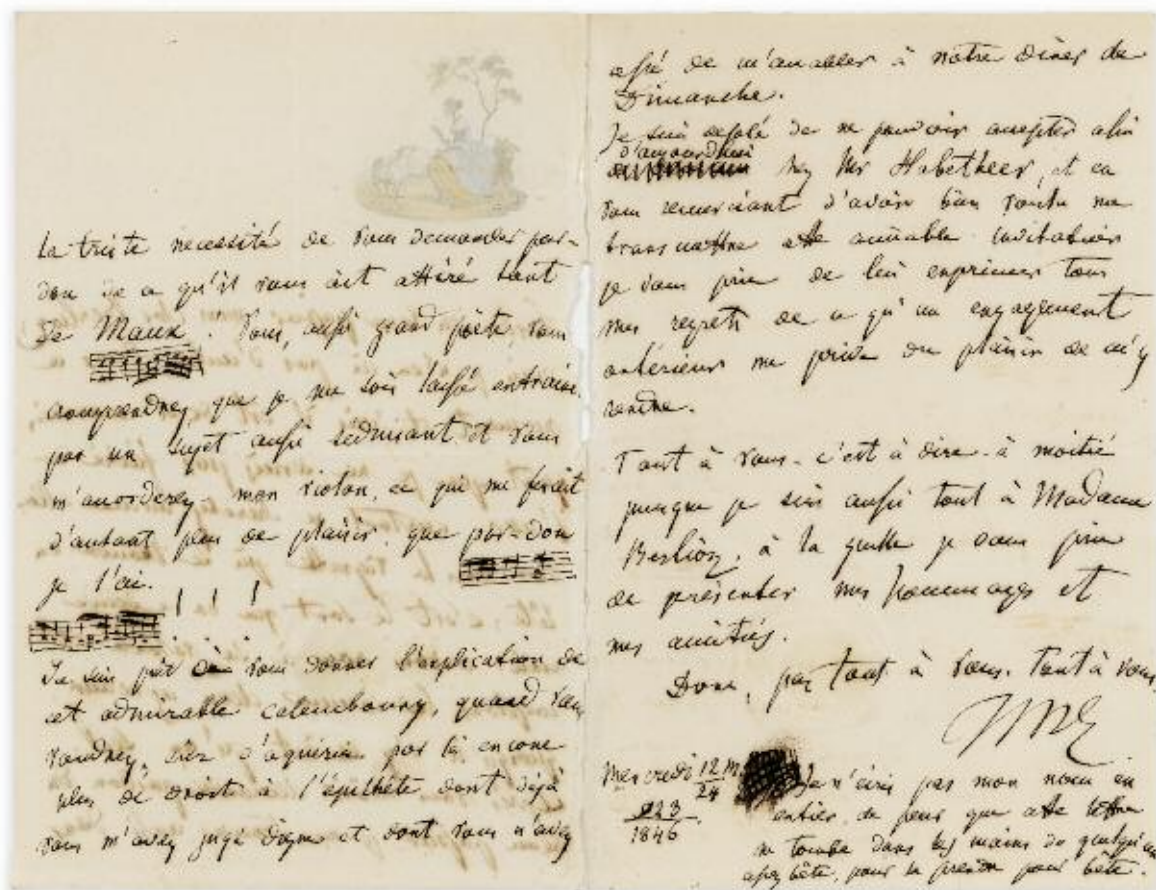 la triste necessité de vous demander par-
don de ce qu'il vous ait attiré tant
de Maux. Vous, aussi grand poëte, vous
comprendrez, que je me sois laissé entrainer
par un sujet aussi seduisant et vous
m'accorderez mon violon, ce qui me ferait
d'autant plus de plaisir, que par-don
je l'ai. ! ! !
Je suis prêt à vous donner l'explication de
cet admirable calembourg, quand vous
voudrez, sûr d'aquérir par là encore
plus de droit à l'épithête dont déjà
vous m'avez jugé digne et dont vous n'avez
cessé de m'accabler à notre diner de
Dimanche.
Je suis désolé de ne pouvoir accepter celui
d'aujourdhui
chez Mr Habetheer, et en
vous remerciant d'avoir bien voulu me
transmettre cette aimable invitation
je vous prie de lui exprimer tous
mes regrets de ce qu'un engagement
antérieur me prive du plaisir de m'y
rendre.
Tout à vous - c'est à dire - à moitié
puisque je suis aussi tout à Madame
Berlioz, à la quelle je vous prie
de présenter mes hommages et
mes amitiés.
Donc, pas tout à vous. Tout à vous.
Mercredi 12/24 M.
1846
Je n'écris pas mon nom en
entier, de peur que cette lettre
ne tombe dans les mains de quelqu'un
assez bête, pour la prendre pour bête.